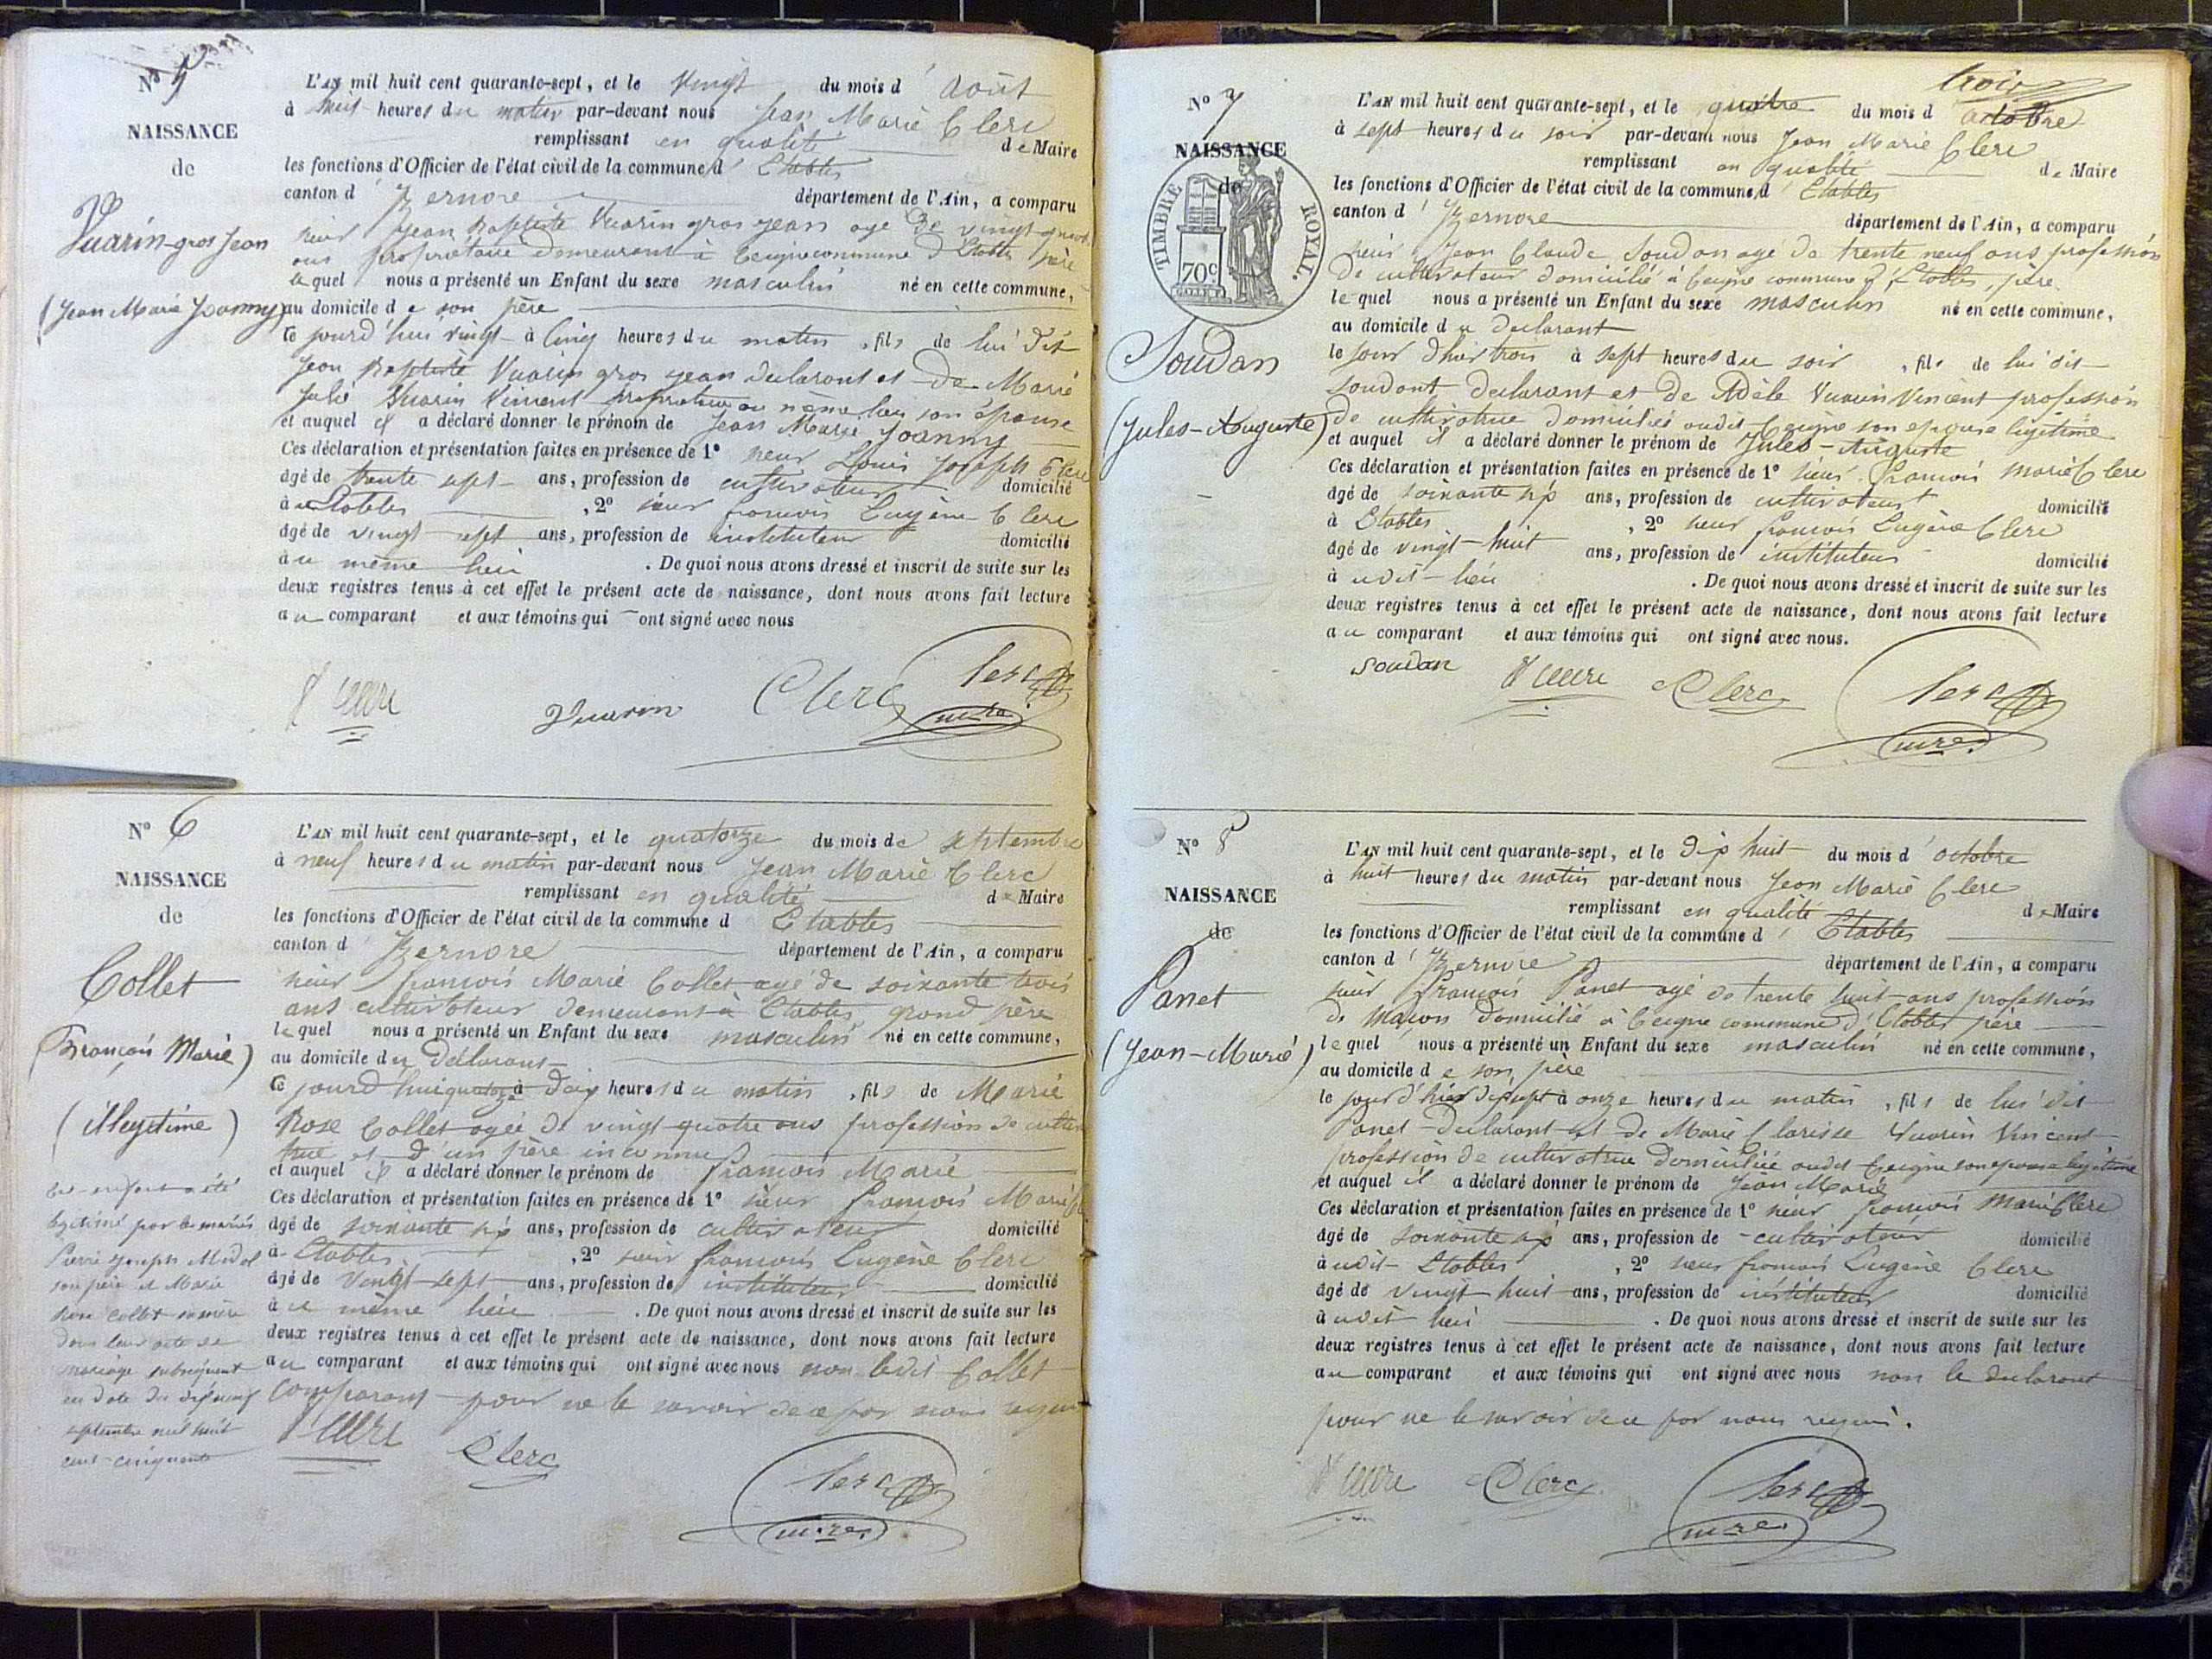 N° 5
NAISSANCE
de
Vuarin-gros Jean
(Jean Marie Joanny)
L'AN mil huit cent quarante-sept, et le vingt du mois d'Août
à huit heures du matin par-devant nous Jean Marie Clerc
remplissant en qualité de Maire
les fonctions d'Officier de l'état civil de la commune d'Etables
canton d'Izernore département de l'Ain, a comparu
sieur Jean Baptiste Vuarin gros jean agé de vingt
ans propriétaire demeurant à Ceigne commune d'Etables père
lequel nous a présenté un Enfant du sexe masculin né en cette commune,
au domicile de son père
Ce jourd'hui vingt à cinq heures du matin, fils de lui dit
Jean Baptiste Vuarin gros jean declarant et de Marie
Julie Vuarin Vincent propriétaire au même lieu son épouse
et auquel il a déclaré donner le prénom de Jean Marie Joanny
Ces déclaration et présentation faites en présence de 1° sieur Louis Joseph Clerc
âgé de trente sept ans, profession de cultivateur domicilié
à Etables, 2° sieur françois Eugène Clerc
âgé de vingt sept ans, profession de instituteur domicilié
au même lieu. De quoi nous avons dressé et inscrit de suite sur les
deux registres tenus à cet effet le présent acte de naissance, dont nous avons fait lecture
au comparant et aux témoins qui ont signé avec nous
Vuarin Clerc Clerc
mre
N° 6
NAISSANCE
de
Collet
(François Marie)
(illegitime)
Cet enfant a été
légitimé par le mariés
Pierre Joseph
son père et Marie
Rose Collet sa mère
dans leur acte de
mariage subséquent
en date du dix neuf
septembre mil huit
cent cinquante
L'AN mil huit cent quarante-sept, et le quatorze du mois de septembre
à neuf heures du matin par-devant nous Jean Marie Clerc
remplissant en qualité de Maire
les fonctions d'Officier de l'état civil de la commune d Etables
canton d'Izernore département de l'Ain, a comparu
sieur françois Marie Collet agé de soixante trois
ans cultivateur demeurant à Etables grand père
lequel nous a présenté un Enfant du sexe masculin né en cette commune,
au domicile du declarant
Ce jourd'hui quatorze à heures du matin, fils de Marie
Rose Collet agée de vingt quatre ans profession de
et d'un père inconnu
et auquel il a déclaré donner le prénom de françois Marie
Ces déclaration et présentation faites en présence de 1° sieur françois Marie
âgé de soixante six ans, profession de cultivateur domicilié
à Etables, 2° sieur françois Eugène Clerc
âgé de vingt sept ans, profession de instituteur domicilié
au même lieu. De quoi nous avons dressé et inscrit de suite sur les
deux registres tenus à cet effet le présent acte de naissance, dont nous avons fait lecture
au comparant et aux témoins qui ont signé avec nous non ledit Collet
comparant pour ne le savoir de ce par nous requis
Clerc Clerc
mre
N° 7
NAISSANCE
de
TIMBRE ROYAL.
70c
Soudan
(Jules-Auguste)
trois
L'AN mil huit cent quarante-sept, et le quatre du mois d'octobre
à sept heures du soir par-devant nous Jean Marie Clerc
remplissant en qualité de Maire
les fonctions d'Officier de l'état civil de la commune d'Etables
canton d'Izernore département de l'Ain, a comparu
sieur Jean Claude Soudan agé de trente neuf ans profession
de cultivateur domicilié à Ceigne commune d'Etables, père
lequel nous a présenté un Enfant du sexe masculin né en cette commune,
au domicile du declarant
le jour d'hier trois à sept heures du soir, fils de lui dit
soudant declarant et de Adèle Vuarin Vincent profession
de cultivatrice domiciliés audit Ceigne son epouse légitime
et auquel il a déclaré donner le prénom de Jules-Auguste
Ces déclaration et présentation faites en présence de 1° sieur françois Marie Clerc
âgé de soixante six ans, profession de cultivateur domicilié
à Etables, 2° sieur françois Eugène Clerc
âgé de vingt huit ans, profession de instituteur domicilié
audit lieu. De quoi nous avons dressé et inscrit de suite sur les
deux registres tenus à cet effet le présent acte de naissance, dont nous avons fait lecture
au comparant et aux témoins qui ont signé avec nous.
soudan Clerc Clerc
mre
N° 8
NAISSANCE
de
Panet
(Jean-Marie)
L'AN mil huit cent quarante-sept, et le dix huit du mois d'octobre
à huit heures du matin par-devant nous Jean Marie Clerc
remplissant en qualité de Maire
les fonctions d'Officier de l'état civil de la commune d'Etables
canton d'Izernore département de l'Ain, a comparu
sieur françois Panet agé de trente huit ans profession
de Maçon domicilié à Ceigne commune d'Etables père
lequel nous a présenté un Enfant du sexe masculin né en cette commune,
au domicile de son père
le jour d'hier dix sept à onze heures du matin, fils de lui dit
Panet declarant et de Marie Clarisse Vuarin Vincent
profession de cultivatrice domiciliée audit Ceigne son epouse légitime
et auquel il a déclaré donner le prénom de Jean Marie
Ces déclaration et présentation faites en présence de 1° sieur françois Marie Clerc
âgé de soixante six ans, profession de cultivateur domicilié
audit Etables, 2° sieur françois Eugène Clerc
âgé de vingt huit ans, profession de instituteur domicilié
audit lieu. De quoi nous avons dressé et inscrit de suite sur les
deux registres tenus à cet effet le présent acte de naissance, dont nous avons fait lecture
au comparant et aux témoins qui ont signé avec nous non le declarant
pour ne le savoir de ce par nous requis.
Clerc Clerc
mre